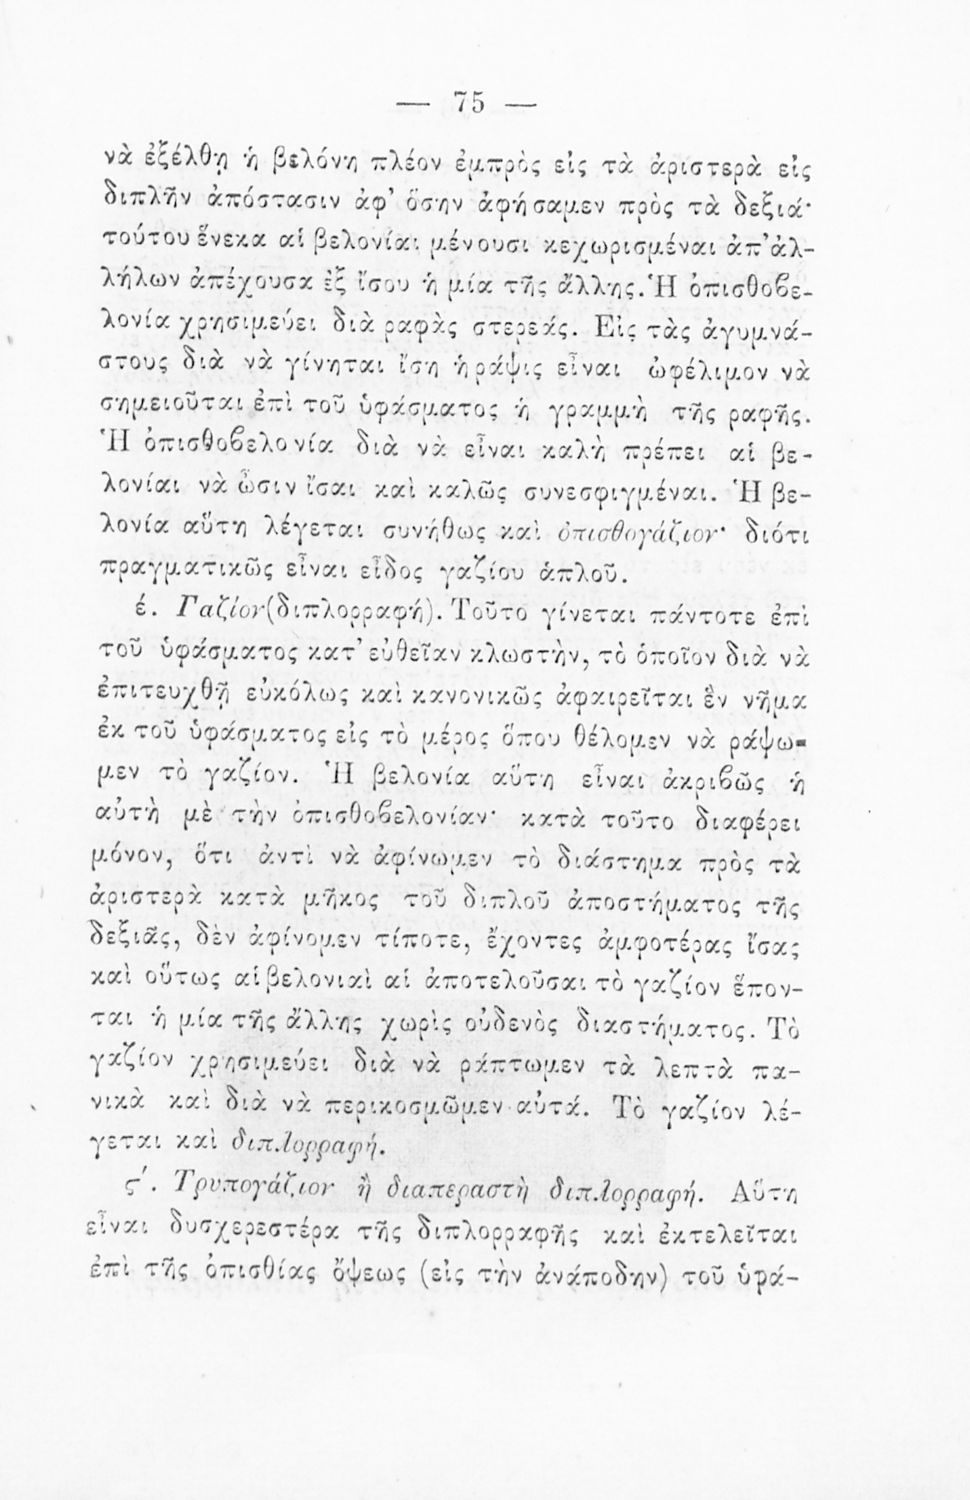 — 75 —
νὰ ἐξέλθῃ ἡ βελόνη πλέον ἐμπρὸς εἰς τὰ ἀριστερὰ εἰς
διπλῆν ἀπόστασιν ἀφ’ ὅσην ἀφήσαμεν πρὸς τὰ δεξιά·
τούτου ἕνεκα αἱ βελονίαι μένουσι κεχωρισμέναι ἀπ’ ἀλ-
λήλων ἀπέχουσα ἐξ ἴσου ἡ μία τῆς ἄλλης. Ἡ ὀπισθοϐε-
λονία χρησιμεύει διὰ ραφὰς στερεάς. Εἰς τὰς ἀγυμνά-
στους διὰ νὰ γίνηται ἴση ἡ ράψις εἶναι ὠφέλιμον νὰ
σημειοῦται ἐπὶ τοῦ ὑφάσματος ἡ γραμμὴ τῆς ραφῆς.
Ἡ ὀπισθοϐελονία διὰ νὰ εἶναι καλὴ πρέπει αἱ βε-
λονίαι νὰ ὦσιν ἴσαι καὶ καλῶς συνεσφιγμέναι. Ἡ βε-
λονία αὕτη λέγεται συνήθως καὶ ὀπισθογάζιον· διότι
πραγματικῶς εἶναι εἶδος γαζίου ἁπλοῦ.
έ. Γαζίον (διπλορραφή). Τοῦτο γίνεται πάντοτε ἐπὶ
τοῦ ὑφάσματος κατ’ εὐθεῖαν κλωστὴν, τὸ ὁποῖον διὰ νὰ
ἐπιτευχθῇ εὐκόλως καὶ κανονικῶς ἀφαιρεῖται ἓν νῆμα
ἐκ τοῦ ὑφάσματος εἰς τὸ μέρος ὅπου θέλομεν νὰ ράψω-
μεν τὸ γαζίον. Ἡ βελονία αὕτη εἶναι ἀκριϐῶς ἡ
αὐτὴ μὲ τὴν ὀπισθοϐελονίαν· κατὰ τοῦτο διαφέρει
μόνον, ὅτι ἀντὶ νὰ ἀφίνωμεν τὸ διάστημα πρὸς τὰ
ἀριστερὰ κατὰ μῆκος τοῦ διπλοῦ ἀποστήματος τῆς
δεξιᾶς, δὲν ἀφίνομεν τίποτε, ἔχοντες ἀμφοτέρας ἴσας
καὶ οὕτως αἱ βελονιαὶ αἱ ἀποτελοῦσαι τὸ γαζίον ἕπον-
ται ἡ μία τῆς ἄλλης χωρὶς οὐδενὸς διαστήματος. Τὸ
γαζίον χρησιμεύει διὰ νὰ ράπτωμεν τὰ λεπτὰ πα-
νικὰ καὶ διὰ νὰ περικοσμῶμεν αὐτά. Τὸ γαζίον λέ-
γεται καὶ διπλορραφή.
ς΄. Τρυπογάζιον ἢ διαπεραστὴ διπλορραφή. Αὕτη
εἶναι δυσχερεστέρα τῆς διπλορραφῆς καὶ ἐκτελεῖται
ἐπὶ τῆς ὀπισθίας ὄψεως (εἰς τὴν ἀνάποδην) τοῦ ὑφά-